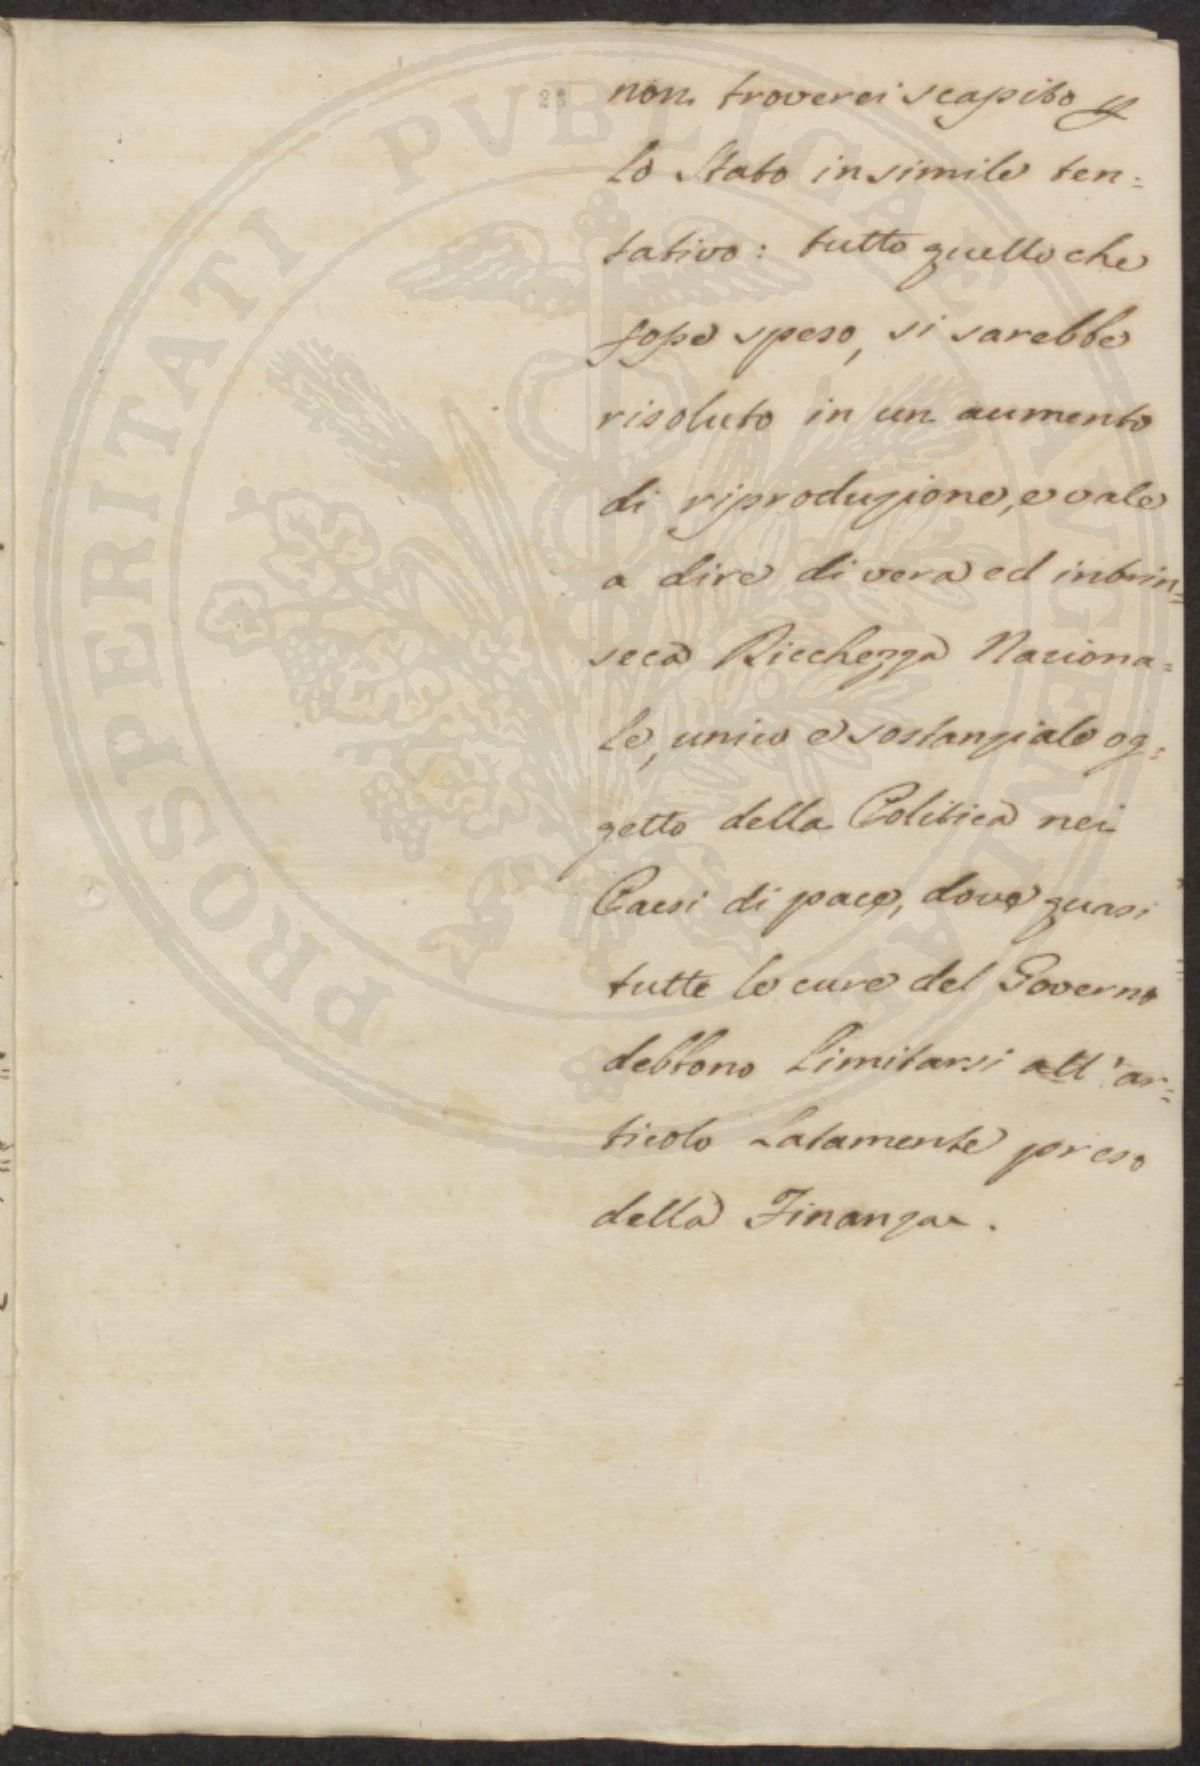 23
non troverei scapito p
lo Stato in simile ten:
tativo: tutto quello che
fosse speso, si sarebbe
risoluto in un aumento
di riproduzione, e vale
a dire di vera ed intrin=
seca Ricchezza Naziona=
le, unico e sostanziale og=
getto della Politica nei
Paesi di pace, dove quasi
tutte le cure del Governo
debbono limitarsi all'ar=
ticolo Latamente preso
della Finanza.
PROSPERITATI PVBLICAE AVGENDAE